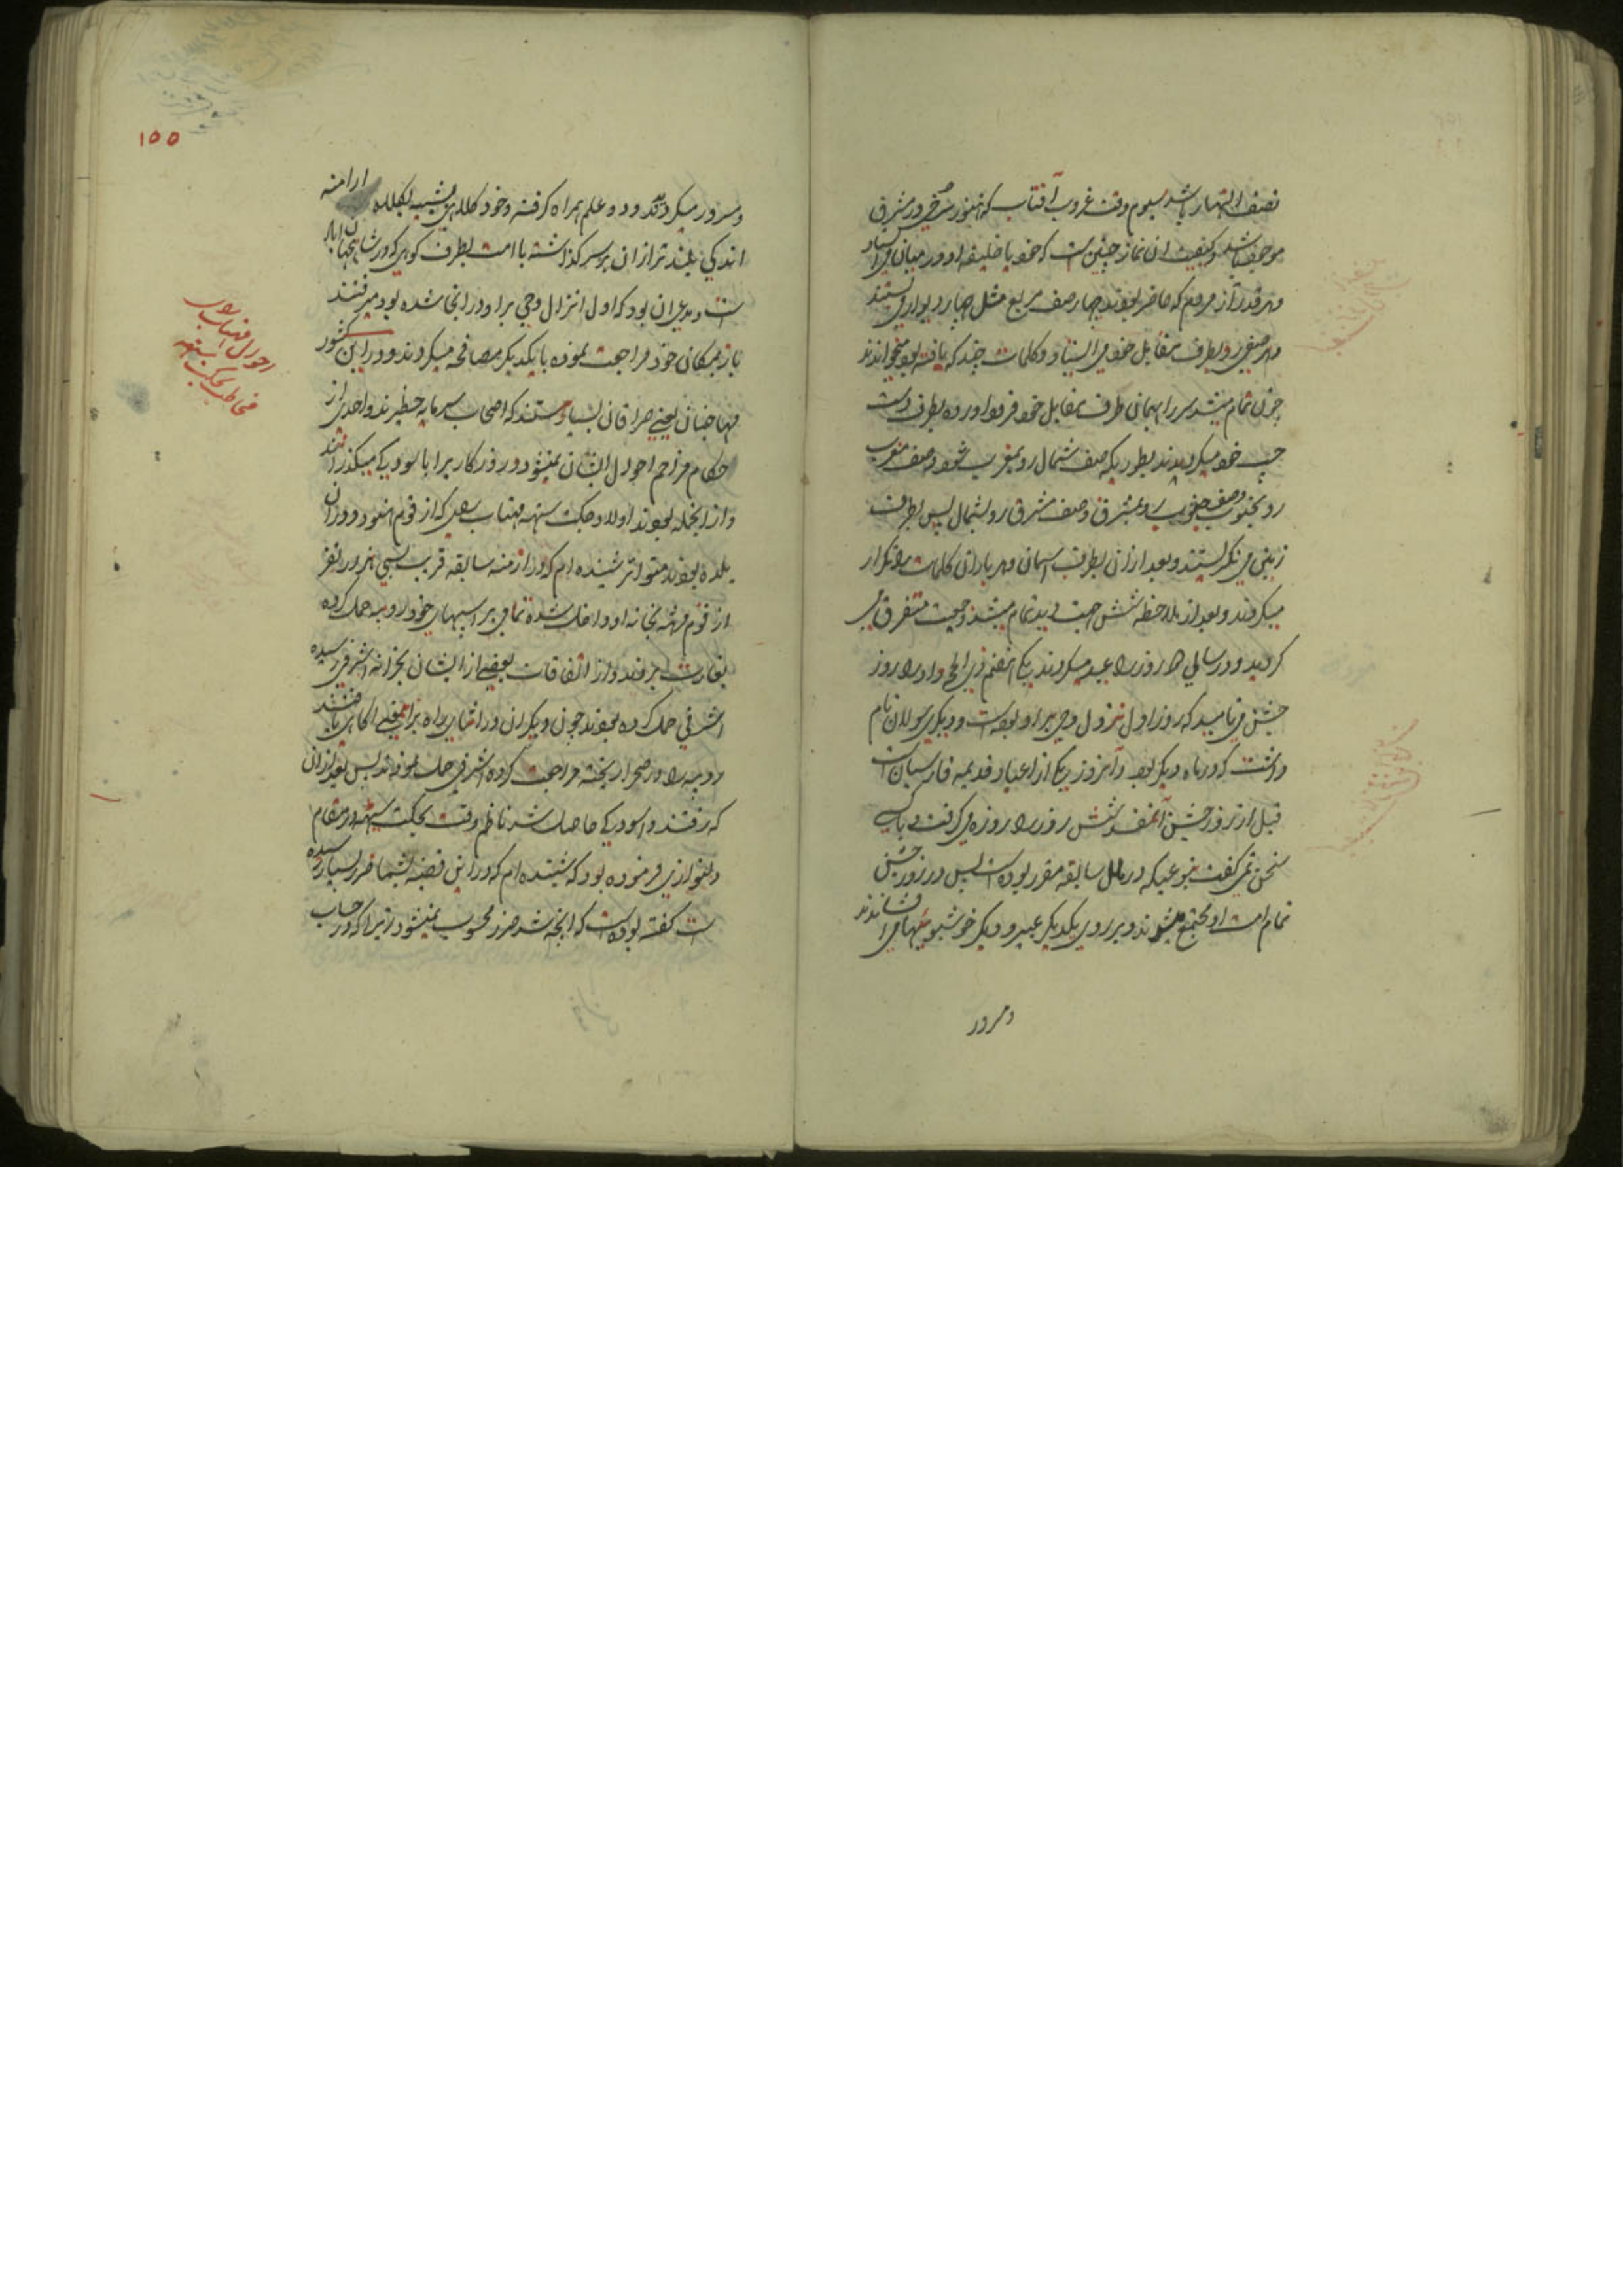 نصف النهار باشد سیوم وقت غروب آفتاب که هنوز سرخی در شرق
موجود باشد و کیفیت ان نماز چنین است که خود یا خلیفه او در میان می استاد
و هر قدر از مردم که حاضر بودند چهار صف مربع مثل چهار دیواری
و هر صفی رو بطرف مقابل خود می استاد و کلمات چند که یافته بود میخواندند
چون تمام میشد سر را بهمانی طرف مقابل خود فرود اورده بطرف دست
چپ خود میکردیدند بطوریکه صف شمال رو بمغرب شود و صف مغرب
رو بجنوب و صف جنوب رو بمشرق و صف مشرق رو بشمال پس بطرف
زمین می نکریستند و بعد ازان بطرف اسمان و هر بار ان کلمات را تکرار
میکردند و بعد از ملاحظه شش جهت دید تمام میشد و جمعیت متفرق می
کردید و در سالی روز را عید میکردند یکی هفتم ذی الحج و او را روز
جشن می نامید که روز اول نزول وحی بر او بوده است و دیکری نام
داشت که در ماه دیکر بود و آنروز یکی از اعیاد قدیمه فارسیان است
قبل از روز جشن شش روز را روزه می کرفت و با کسی
سخن نمی کفت بنوعیکه در ملل سابقه مقرر بوده است پس در روز جشن
تمام امت او مجتمع میشوند و بر روی یکدیکر عبیر و دیکر خوشبوییها می افشاندند
و سرور
۱۵۵
و سرور میکردند و دو علم همراه کرفته و خود کلاهی
اندکی بلند تر از ان بر سر کذاشته با امت بطرف کوهی که در شاهجهان اباد
است و مدعی ان بود که اول انزال وحی بر او در انجا شده بود میرفتند
باز بمکان خود مراجعت نموده با یکدیکر مصافحه میکردند و در این کشور
مهاجنان یعنی صرافان بسیار هستند که اصحاب سرمایه خطیرند و احدی از
حکام مزاحم احوال ایشان نمیشود و روزکار را باسودیکی میکذرانند
و از انجمله بودند اولاد جکت سنهه مهتاب رای که از قوم هنود و در ان
بلده بودند متواتر شنیده ام که در ازمنه سابقه قریب سی هزار نفر
از قوم مرهته بخانه او داخل شده تمامی بر اسپهای خود روپیه حمل کرده
بغارت بردند و از اتفاقات بعضی از ایشان بخزانه اشرفی رسیده
اشرفی حمل کرده بودند چون دیکران در اثنای راه براینمعنی اکاهی یافتند
روپیه را در صحرا ریخته مراجعت کرده اشرفی حمل نمودند پس بعد ازان
که رفتند و اسودیکی حاصل شد ناظم وقت بجکت سنهه در مقام
دلنوازی فرموده بود که شنیده ام که در این قضیه بشما ضرر بسیار رسیده
است کفته بوده است که انچه شد ضرر محسوب نمیشود زیرا که در حساب
احوال مهتاب رای
مخاطب بجکت سنهه